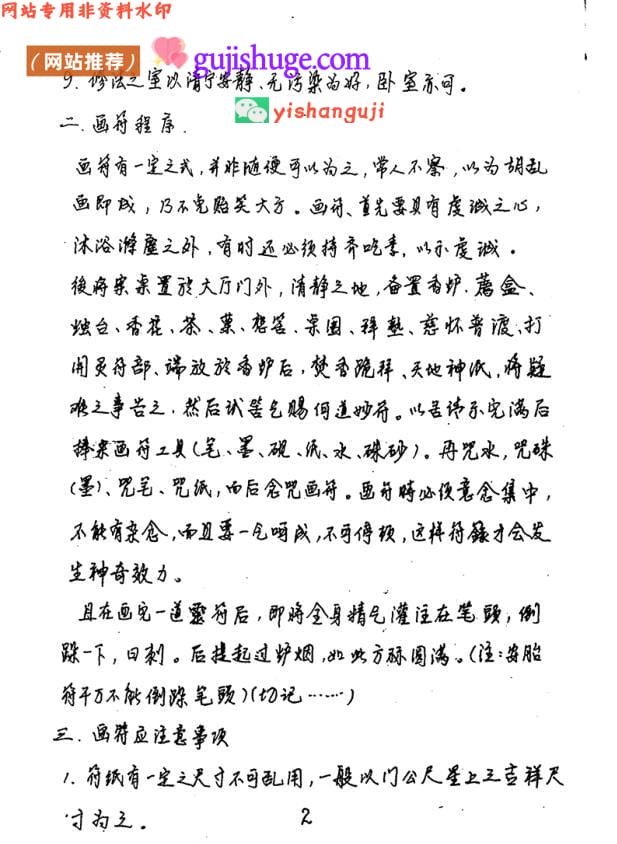 网站专用非资料水印
（网站推荐）
gujishuge.com
yishanguji
9. 修法之室以清宁安静、无污染为好，卧室亦可。
二. 画符程序.
画符有一定之式，并非随便可以为之，常人不察，以为胡乱
画即成，乃不免贻笑大方。画符、首先要具有虔诚之心，
沐浴滌塵之外，有时还必须持齐吃素，以示虔诚。
後将案桌置於大厅门外，清静之地，备置香炉、
烛台、香花、茶、菓、桌围、拜墊、慈怀普渡、打
開灵符部、端放於香炉后，焚香跪拜、天地神祇，将疑
难之事告之，然后试筶乞赐何道妙符。以筶请示完满后
捧来画符工具(笔、墨、砚、纸、水、硃砂)。再咒水，咒硃
(墨)、咒笔、咒纸，而后念咒画符。画符時必须意念集中，
不能有杂念，而且要一气呵成，不可停顿，这样符籙才会发
生神奇效力。
且在画完一道靈符后，即将全身精气灌注在笔頭，倒
跺一下，曰刺。后提起过炉烟，如此方称圆满。(注：安胎
符千万不能倒跺笔頭)(切记……)
三. 画符应注意事项
1. 符纸有一定之尺寸不可乱用，一般以门公尺星上之吉祥尺
寸为之。
2